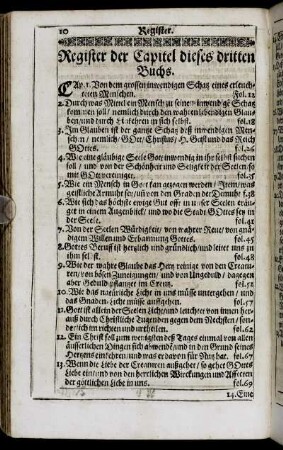 10 Register.
Register der Capitel dieses dritten
Buchs.
CAp. 1. Von dem grossen inwendigen Schatz eines erleuch-
teten Menschen. fol. 12
2. Durch was Mittel ein Mensch zu seinem inwendigen Schatz
kommen soll / nemlich durch den wahren lebendigen Glau-
ben / und durch Einkehren in sich selbst. fol. 18
3. Im Glauben ist der gantze Schatz deß inwendigen Men-
schen / nemlich / GOtt / Christus / H. Geist und das Reich
GOttes. fol. 26
4. Wie eine gläubige Seele Gott inwendig in ihr selbst suchen
soll / und von der Schönheit und Seligkeit der Seelen so
mit GOtt vereiniget.
5. Wie ein Mensch zu Gott kan gezogen werden / Item / was
geistliche Armuth sey / und von den Graden der Demuth f. 38
6. Wie sich das höchste ewige Gut offt in unser Seelen eräu-
get in einem Augenblick / und wo die Stadt GOttes sey in
der Seele. fol. 41
7. Von der Seelen Würdigkeit / von wahrer Reue / von gnä-
digem Willen und Erbarmung Gottes. fol. 45
8. Gottes Beruff ist hertzlich und gründlich und leitet uns zu
ihm selbst. fol. 48
9. Wie der wahre Glaube das Hertz reinige von den Creatu-
ren / von bösen Zuneigungen / und von Ungedult / dagegen
aber Gedult pflantzet im Creutz. fol. 51
10. Wie das natürliche Licht in uns müsse untergehen / und
das Gnaden-Licht müsse aufgehen. fol. 57
11. Gott ist allein der Seelen Licht und leuchtet von innen her-
auß durch Christliche Tugenden gegen dem Nechsten / son-
derlich im richten und urtheilen. fol. 62
12. Ein Christ soll zum wenigsten deß Tages einmal von allen
äusserlichen Dingen sich abwenden / und in den Grund seines
Hertzens einkehren / und was er davon für Nutz hat. fol. 67
13. Wenn die Liebe der Creaturen außgehet / so gehet GOttes
Liebe ein / und von den herrlichen Würckungen und Affecten
der göttlichen Liebe in uns. fol. 69
14. Eine